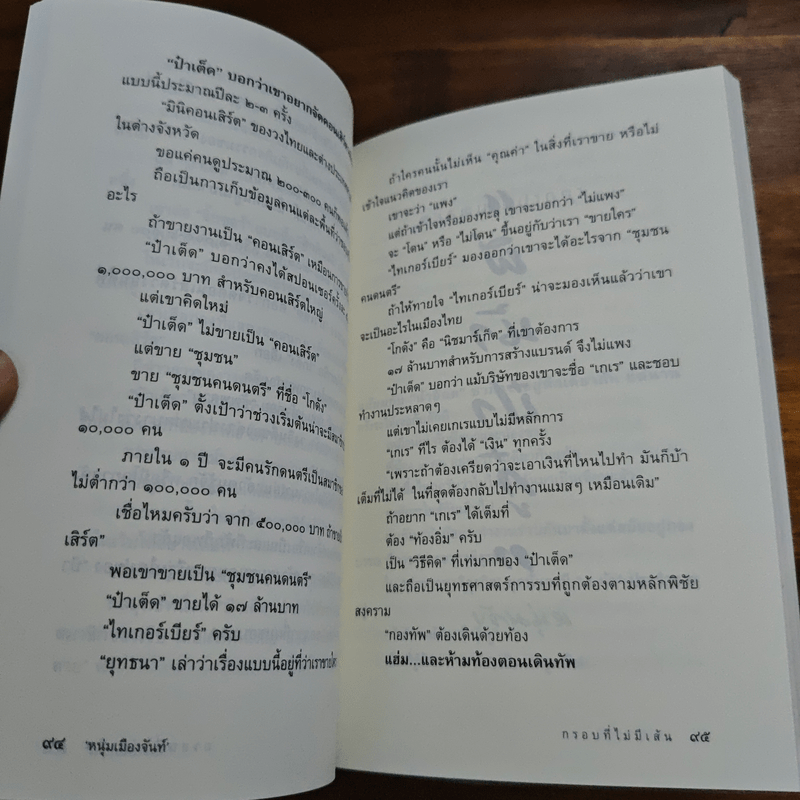 “ป๋าเต็ด” บอกว่าเขาอยากจัดคอนเสิร์ต
แบบนี้ประมาณปีละ ๒-๓ ครั้ง
“มินิคอนเสิร์ต” ของวงไทยและต่างประเทศ
ในต่างจังหวัด
ขอแค่คนดูประมาณ ๒๐๐-๓๐๐ คน
ถือเป็นการเก็บข้อมูลคนแต่ละพื้นที่ว่า
อะไร
ถ้าขายงานเป็น “คอนเสิร์ต” เหมือน
“ป๋าเต็ด” บอกว่าคงได้สปอนเซอร์ครั้งละ
๑,๐๐๐,๐๐๐ บาท สำหรับคอนเสิร์ตใหญ่
แต่เขาคิดใหม่
“ป๋าเต็ด” ไม่ขายเป็น “คอนเสิร์ต”
แต่ขาย “ชุมชน”
ขาย “ชุมชนคนดนตรี” ที่ชื่อ “โกดัง”
“ป๋าเต็ด” ตั้งเป้าว่าช่วงเริ่มต้นน่าจะมี
๑๐,๐๐๐ คน
ภายใน ๑ ปี จะมีคนรักดนตรีเป็นสมาชิก
ไม่ต่ำกว่า ๑๐๐,๐๐๐ คน
เชื่อไหมครับว่า จาก ๕๐๐,๐๐๐ บาท ถ้าขาย
เสิร์ต”
พอเขาขายเป็น “ชุมชนคนดนตรี”
“ป๋าเต็ด” ขายได้ ๑๗ ล้านบาท
“ไทเกอร์เบียร์” ครับ
“ยุทธนา” เล่าว่าเรื่องแบบนี้อยู่ที่ว่าเราขายใคร
๙๔ ‘หนุ่มเมืองจันท์’
ถ้าใครคนนั้นไม่เห็น “คุณค่า” ในสิ่งที่เราขาย หรือไม่
เข้าใจแนวคิดของเรา
เขาจะว่า “แพง”
แต่ถ้าเข้าใจหรือมองทะลุ เขาจะบอกว่า “ไม่แพง”
จะ “โดน” หรือ “ไม่โดน” ขึ้นอยู่กับว่าเรา “ขายใคร”
“ไทเกอร์เบียร์” มองออกว่าเขาจะได้อะไรจาก “ชุมชน
คนดนตรี”
ถ้าให้ทายใจ “ไทเกอร์เบียร์” น่าจะมองเห็นแล้วว่าเขา
จะเป็นอะไรในเมืองไทย
“โกดัง” คือ “นิชมาร์เก็ต” ที่เขาต้องการ
๑๗ ล้านบาทสำหรับการสร้างแบรนด์ จึงไม่แพง
“ป๋าเต็ด” บอกว่า แม้บริษัทของเขาจะชื่อ “เกเร” และชอบ
ทำงานประหลาดๆ
แต่เขาไม่เคยเกเรแบบไม่มีหลักการ
“เกเร” ทีไร ต้องได้ “เงิน” ทุกครั้ง
“เพราะถ้าต้องเครียดว่าจะเอาเงินที่ไหนไปทำ มันก็บ้า
เต็มที่ไม่ได้ ในที่สุดต้องกลับไปทำงานแมสๆ เหมือนเดิม”
ถ้าอยาก “เกเร” ได้เต็มที่
ต้อง “ท้องอิ่ม” ครับ
เป็น “วิธีคิด” ที่เท่มากของ “ป๋าเต็ด”
และถือเป็นยุทธศาสตร์การรบที่ถูกต้องตามหลักพิชัย
สงคราม
“กองทัพ” ต้องเดินด้วยท้อง
แฮ่ม...และห้ามท้องตอนเดินทัพ
กรอบที่ไม่มีเส้น ๙๕